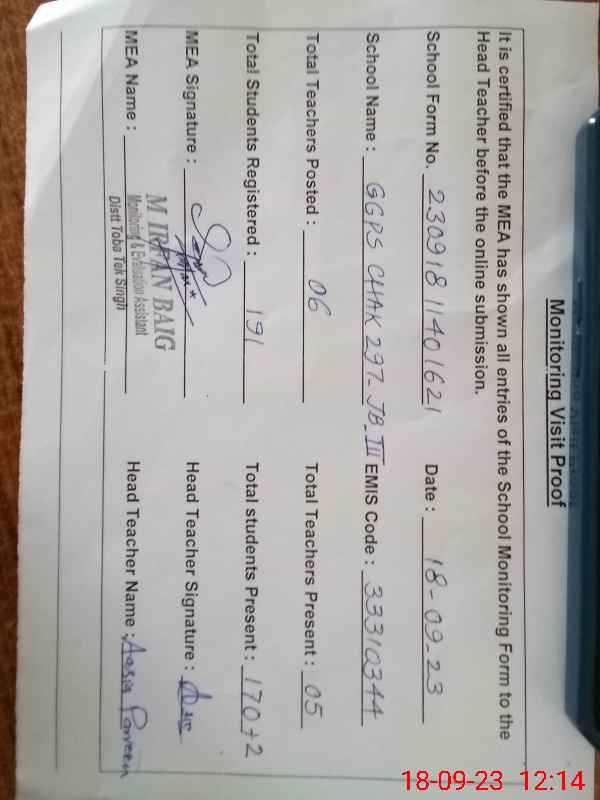 Monitoring Visit Proof
It is certified that the MEA has shown all entries of the School Monitoring Form to the
Head Teacher before the online submission.
School Form No. 230918 11401621 Date : 18-09-23
School Name : GGPS CHAK 297-JB_III EMIS Code : 33310344
Total Teachers Posted : 06 Total Teachers Present : 05
Total Students Registered : 191 Total students Present : 170+2
MEA Signature : Head Teacher Signature :
MEA Name : M IRFAN BAIG Head Teacher Name : Aasia Parveen
Monitoring & Evaluation Assistant
Distt Toba Tek Singh
18-09-23 12:14